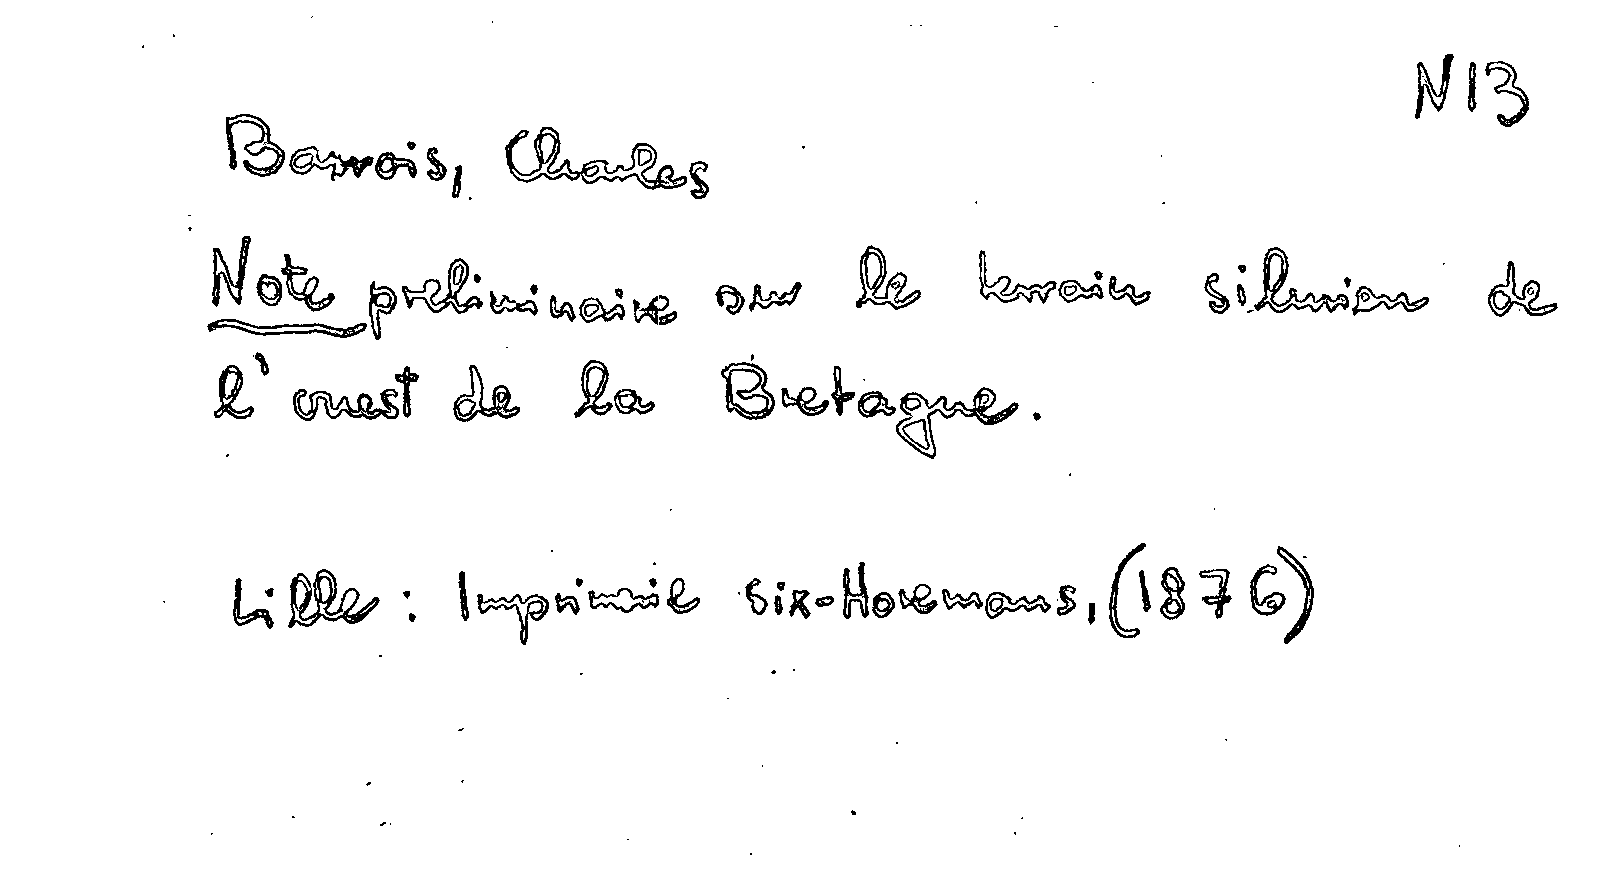 N13
Barrois, Charles
Note preliminaire sur le terrain silurien de
l'ouest de la Bretagne.
Lille : Imprimerie Six-Horemans, (1876)